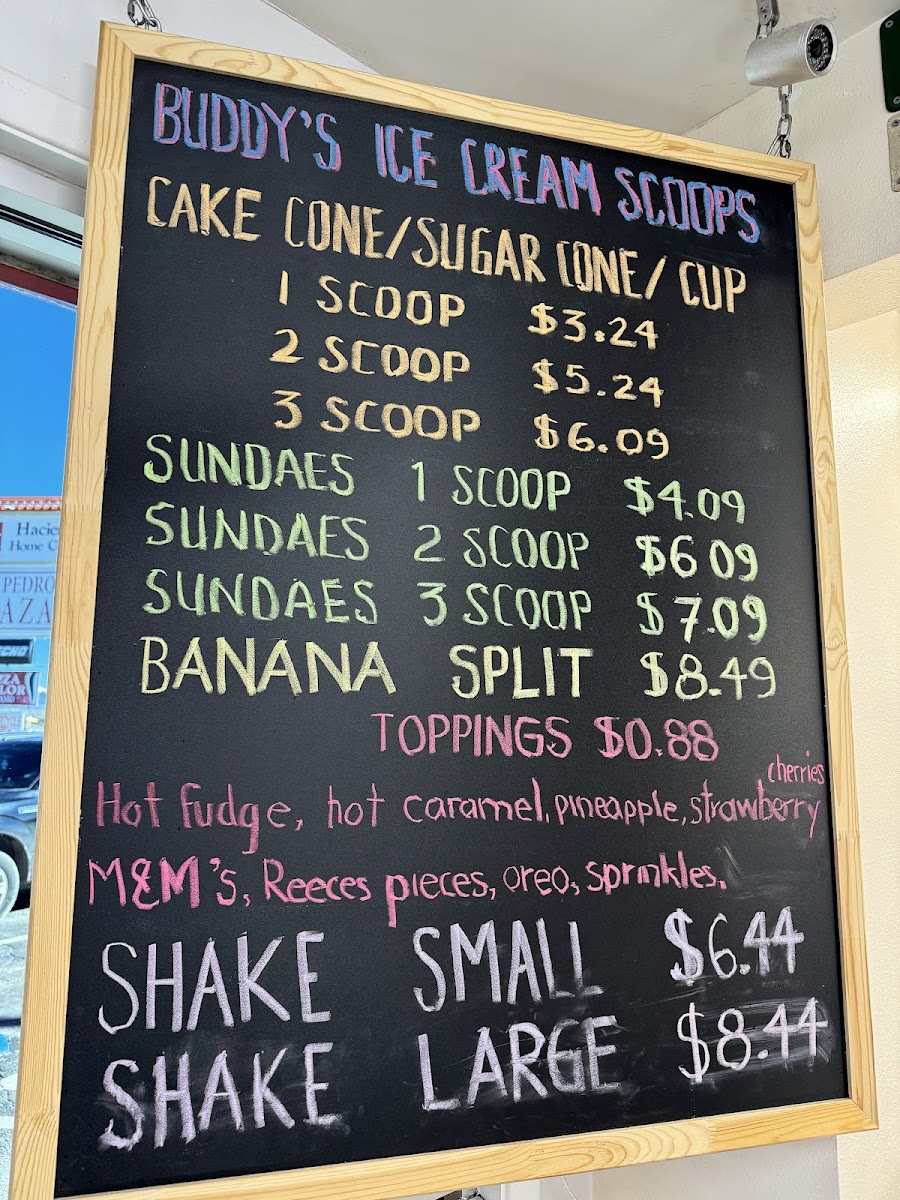 BUDDY'S ICE CREAM SCOOPS
CAKE CONE/SUGAR CONE/ CUP
1 SCOOP $3.24
2 SCOOP $5.24
3 SCOOP $6.09
SUNDAES 1 SCOOP $4.09
SUNDAES 2 SCOOP $6 09
SUNDAES 3 SCOOP $7.09
BANANA SPLIT $8.49
TOPPINGS $0.88
cherries
Hot fudge, hot caramel, pineapple, strawberry
M&M's, Reeces pieces, oreo, sprinkles.
SHAKE SMALL $6.44
SHAKE LARGE $8.44
Home
PEDRO